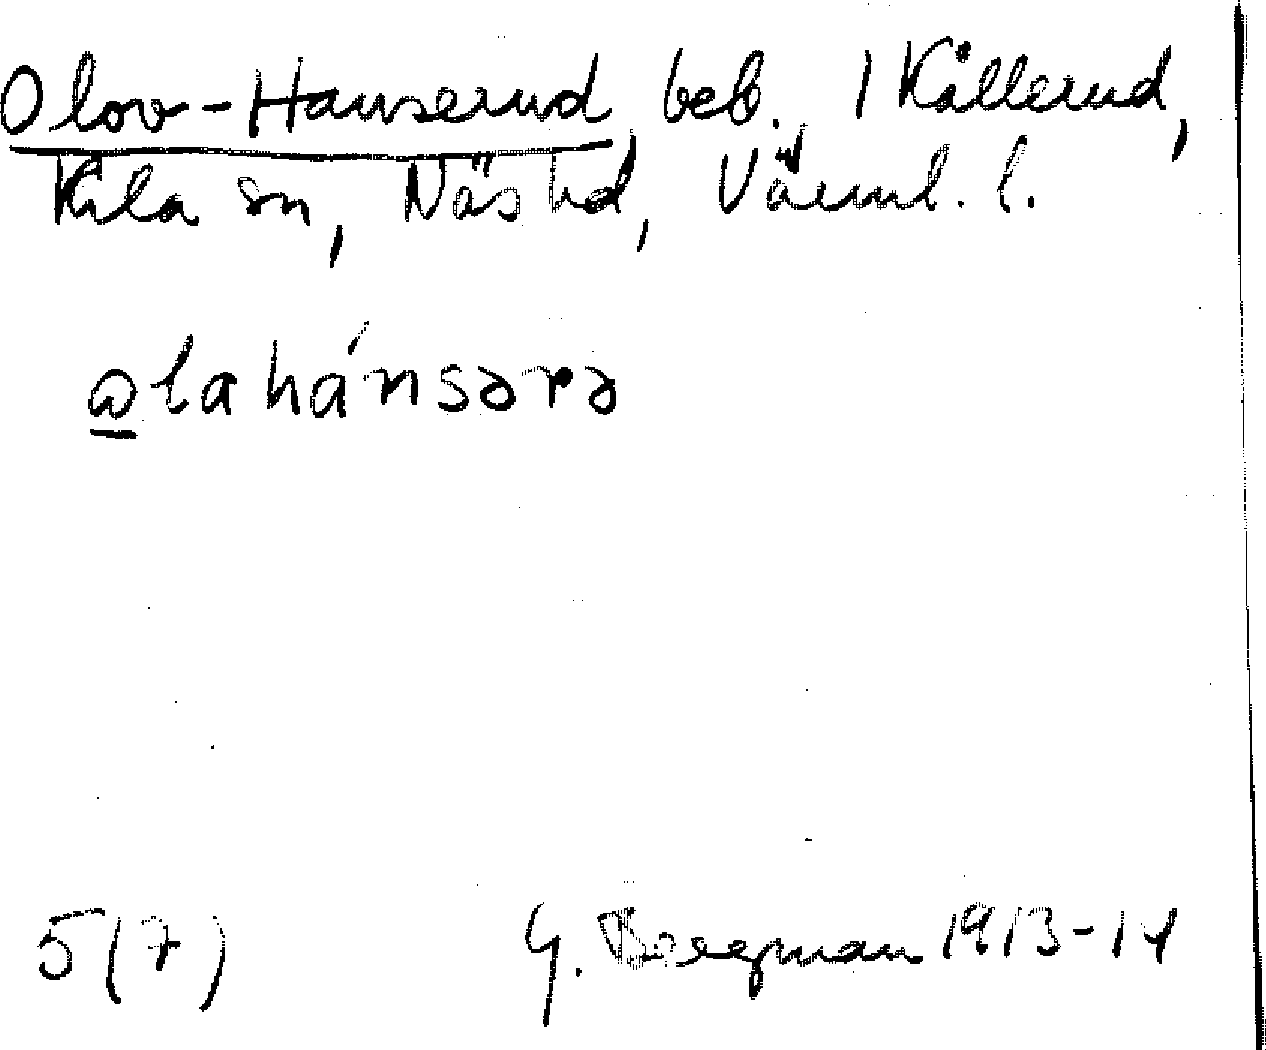 Olov-Hanserud, beb. i Kållerud,
Kila sn, Näs hd, Värml. l.
ω̲lahánsərə
5(7) G. Bergman 1913-14